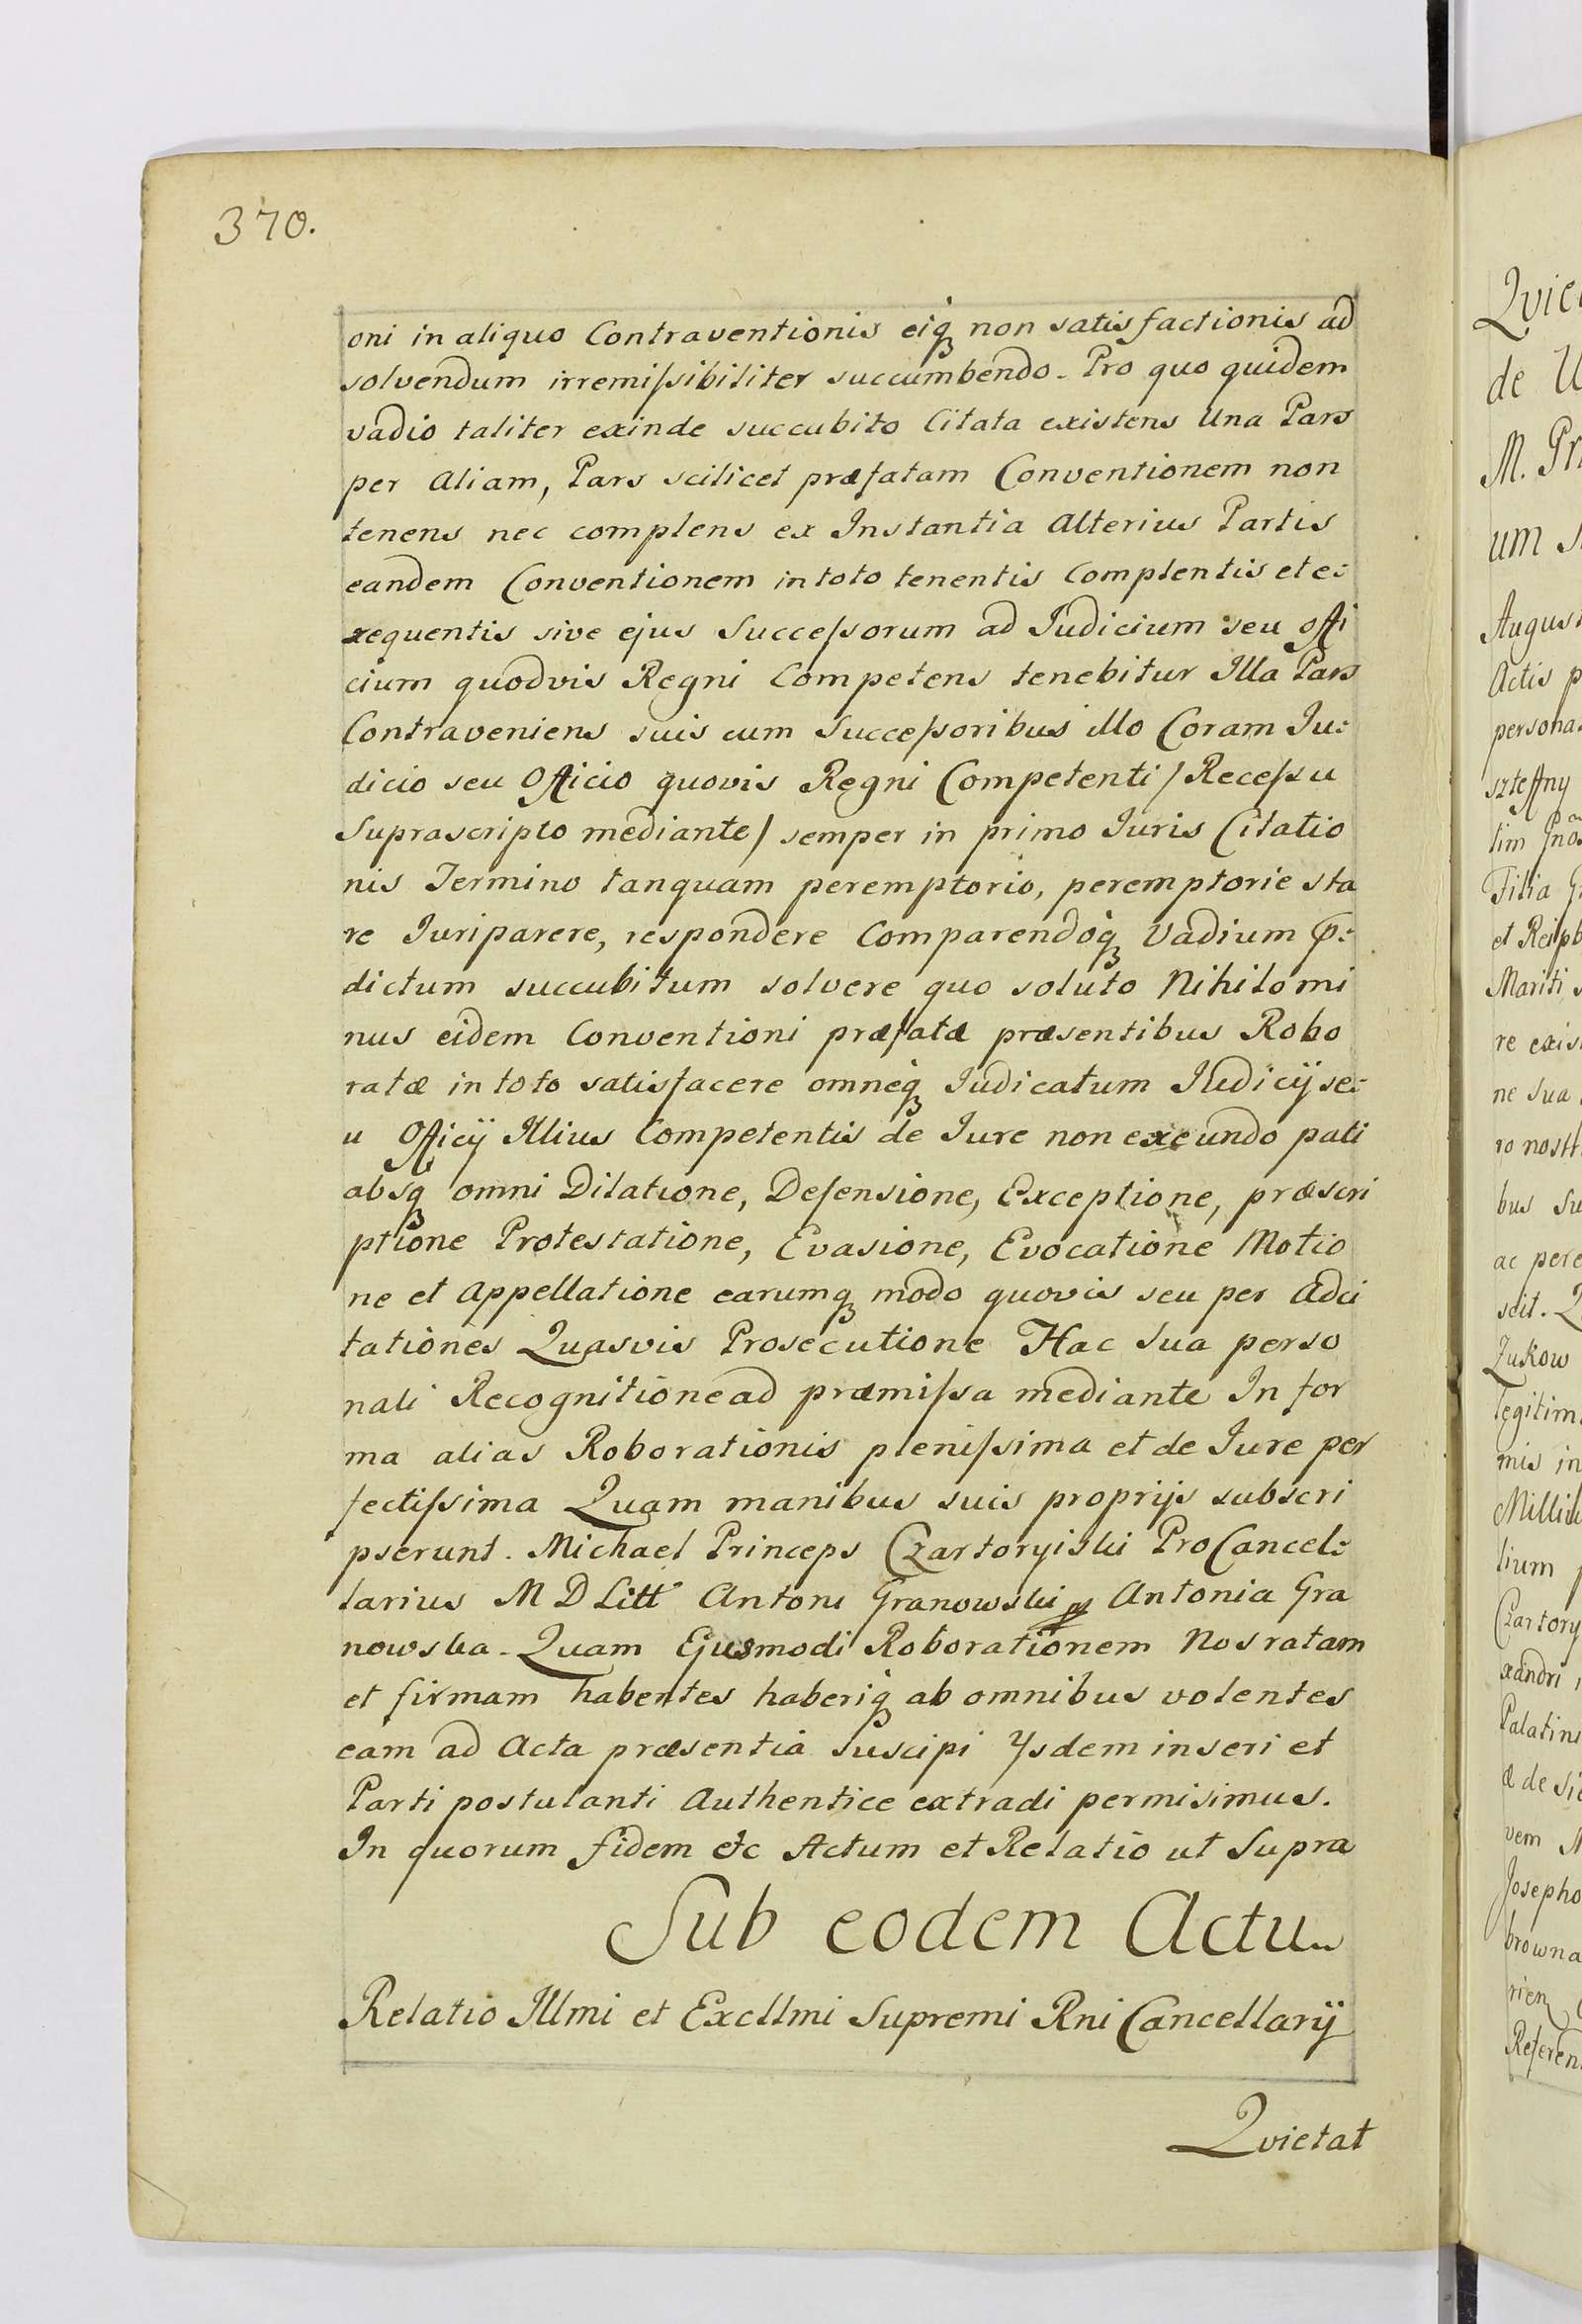 370.
oni in aliquo Contraventionis eiq₃ non satisfactionis ad
solvendum irremiſsibiliter succumbendo. Pro quo quidem
vadio taliter exinde succubito Citata existens Una Pars
per aliam, Pars scilicet præfatam Conventionem non
tenens nec complens ex Instantia Alterius Partis
eandem Conventionem in toto tenentis Complentis et e:
xequentis sive ejus Succeſsorum ad Iudicium seu offi
cium quodvis Regni Competens tenebitur Illa Pars
Contraveniens suis cum Succeſsoribus illo Coram Iu:
dicio seu Officio quovis Regni Competenti / Receſsu
Suprascripto mediante / semper in primo Iuris Citatio
nis Termino tanquam peremptorio, peremptorie sta
re Iuriparere, respondere Comparendoq₃ Vadium p:
dictum succubitum solvere quo soluto Nihilomi
nus eidem Conventioni præfatæ præsentibus Robo
ratæ in toto satisfacere omneq₃ Iudicatum Iudicij se:
u Officij Illius Competentis de Iure non exeundo pati
absq₃ omni Dilatione, Defensione, Exceptione, præscri
ptione Protestatione, Evasione, Evocatione Motio
ne et Appellatione earumq₃ modo quovis seu per Adci
tationes Quasvis Prosecutione Hac Sua perso
nali Recognitione ad præmiſsa mediante In for
ma alias Roborationis pleniſsima et de Iure per
fectiſsima Quam manibus suis proprijs subscri
pserunt. Michael Princeps Czartoryiski ProCancel:
larius M D Litt Antoni Granowski Antonia Gra
nowska. Quam Ejusmodi Roborationem Nos ratam
et firmam habentes haberiq₃ ab omnibus volentes
eam ad Acta præsentia suscipi Ysdem inseri et
Parti postulanti Authentice extradi permisimus.
In quorum fidem etc Actum et Relatio ut Supra
Sub eodem Actu
Relatio Illmi et Excllmi Supremi Rni Cancellarij
Quietat
de
M.
um
August
Actis
persona
szteffny
tim
Filia
et Reipb
Mariti
re exis
ne Sua
ro nostr
bus Su
ac pere
scit.
Zukow
legitim
mis in
Milli
lium
Czartory
xandri
Palatin
æ de
vem
Josepho
browna
rien
Referen